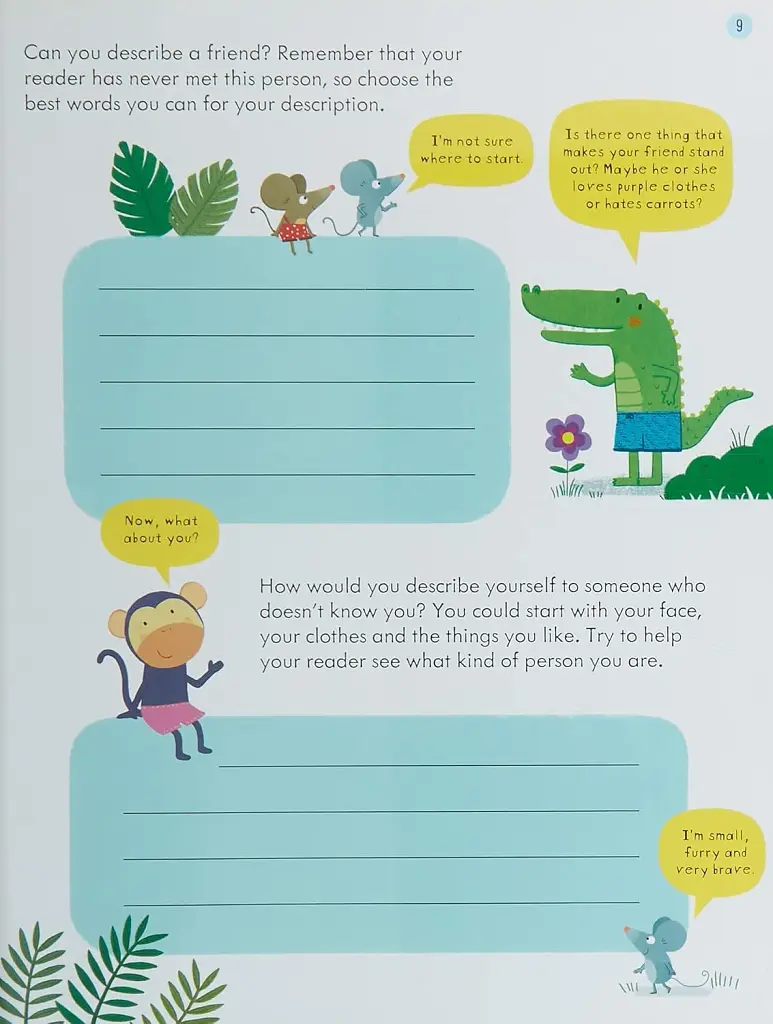 9
Can you describe a friend? Remember that your
reader has never met this person, so choose the
best words you can for your description.
I'm not sure
where to start.
Is there one thing that
makes your friend stand
out? Maybe he or she
loves purple clothes
or hates carrots?
Now, what
about you?
How would you describe yourself to someone who
doesn't know you? You could start with your face,
your clothes and the things you like. Try to help
your reader see what kind of person you are.
I'm small,
furry and
very brave.